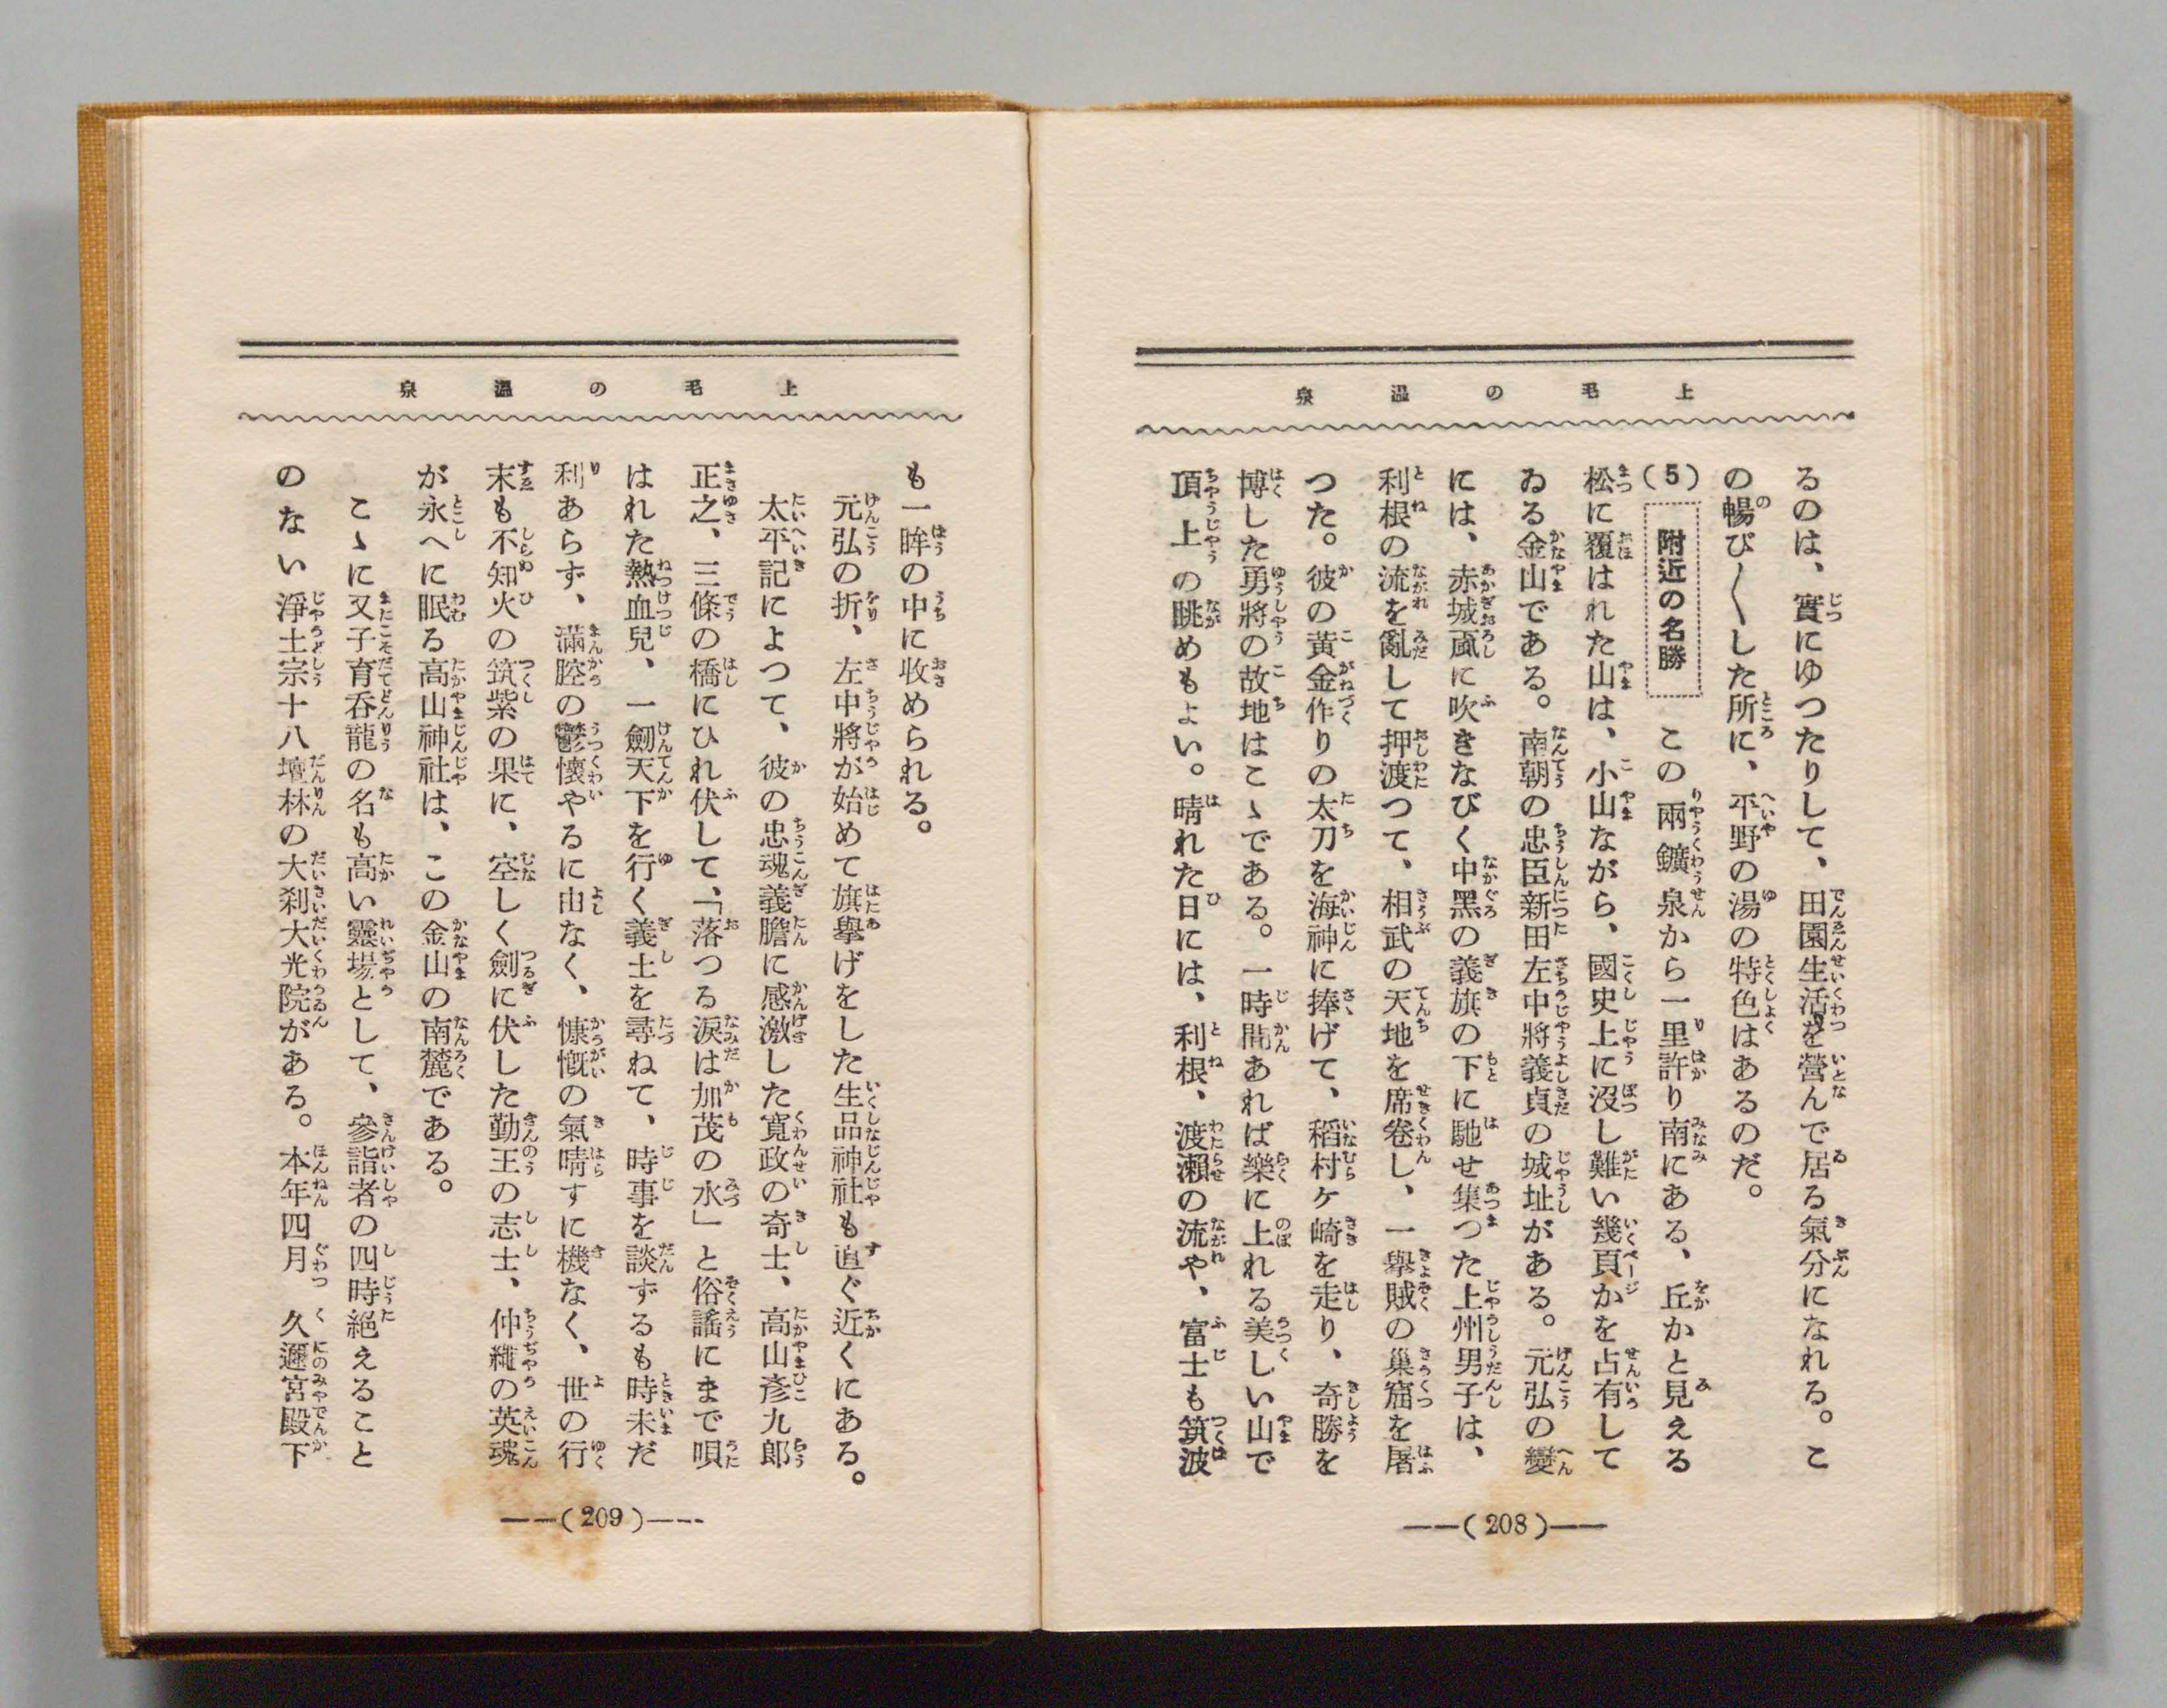 上毛の温泉
るのは、實にゆつたりして、田園生活を營んで居る氣分になれる。こ
の暢び〱した所に、平野の湯の特色はあるのだ。
(5) 附近の名勝 この兩鑛泉から一里許り南にある、丘かと見える
松に覆はれた山は、小山ながら、國史上に沒し難い幾頁かを占有して
ゐる金山である。南朝の忠臣新田左中將義貞の城址がある。元弘の變
には、赤城颪に吹きなびく中黑の義旗の下に馳せ集つた上州男子は、
利根の流を亂して押渡つて、相武の天地を席卷し、一擧賊の巢窟を屠
つた。彼の黄金作りの太刀を海神に捧げて、稻村ヶ崎を走り、奇勝を
博した勇將の故地はこゝである。一時間あれば樂に上れる美しい山で
頂上の眺めもよい。晴れた日には、利根、渡瀨の流や、富士も筑波
(208)
上毛の温泉
も一眸の中に收められる。
元弘の折、左中將が始めて旗擧げをした生品神社も直ぐ近くにある。
太平記によつて、彼の忠魂義膽に感激した寬政の奇士、高山彥九郎
正之、三條の橋にひれ伏して、「落つる淚は加茂の水」と俗謠にまで唄
はれた熱血兒、一劍天下を行く義士を尋ねて、時事を談ずるも時未だ
利あらず、滿腔の鬱懷やるに由なく、慷慨の氣晴すに機なく、世の行
末も不知火の筑紫の果に、空しく劍に伏した勤王の志士、仲繩の英魂
が永へに眠る高山神社は、この金山の南麓である。
こゝに又子育呑龍の名も高い靈場として、參詣者の四時絕えること
のない淨土宗十八壇林の大刹大光院がある。本年四月 久邇宮殿下
(209)